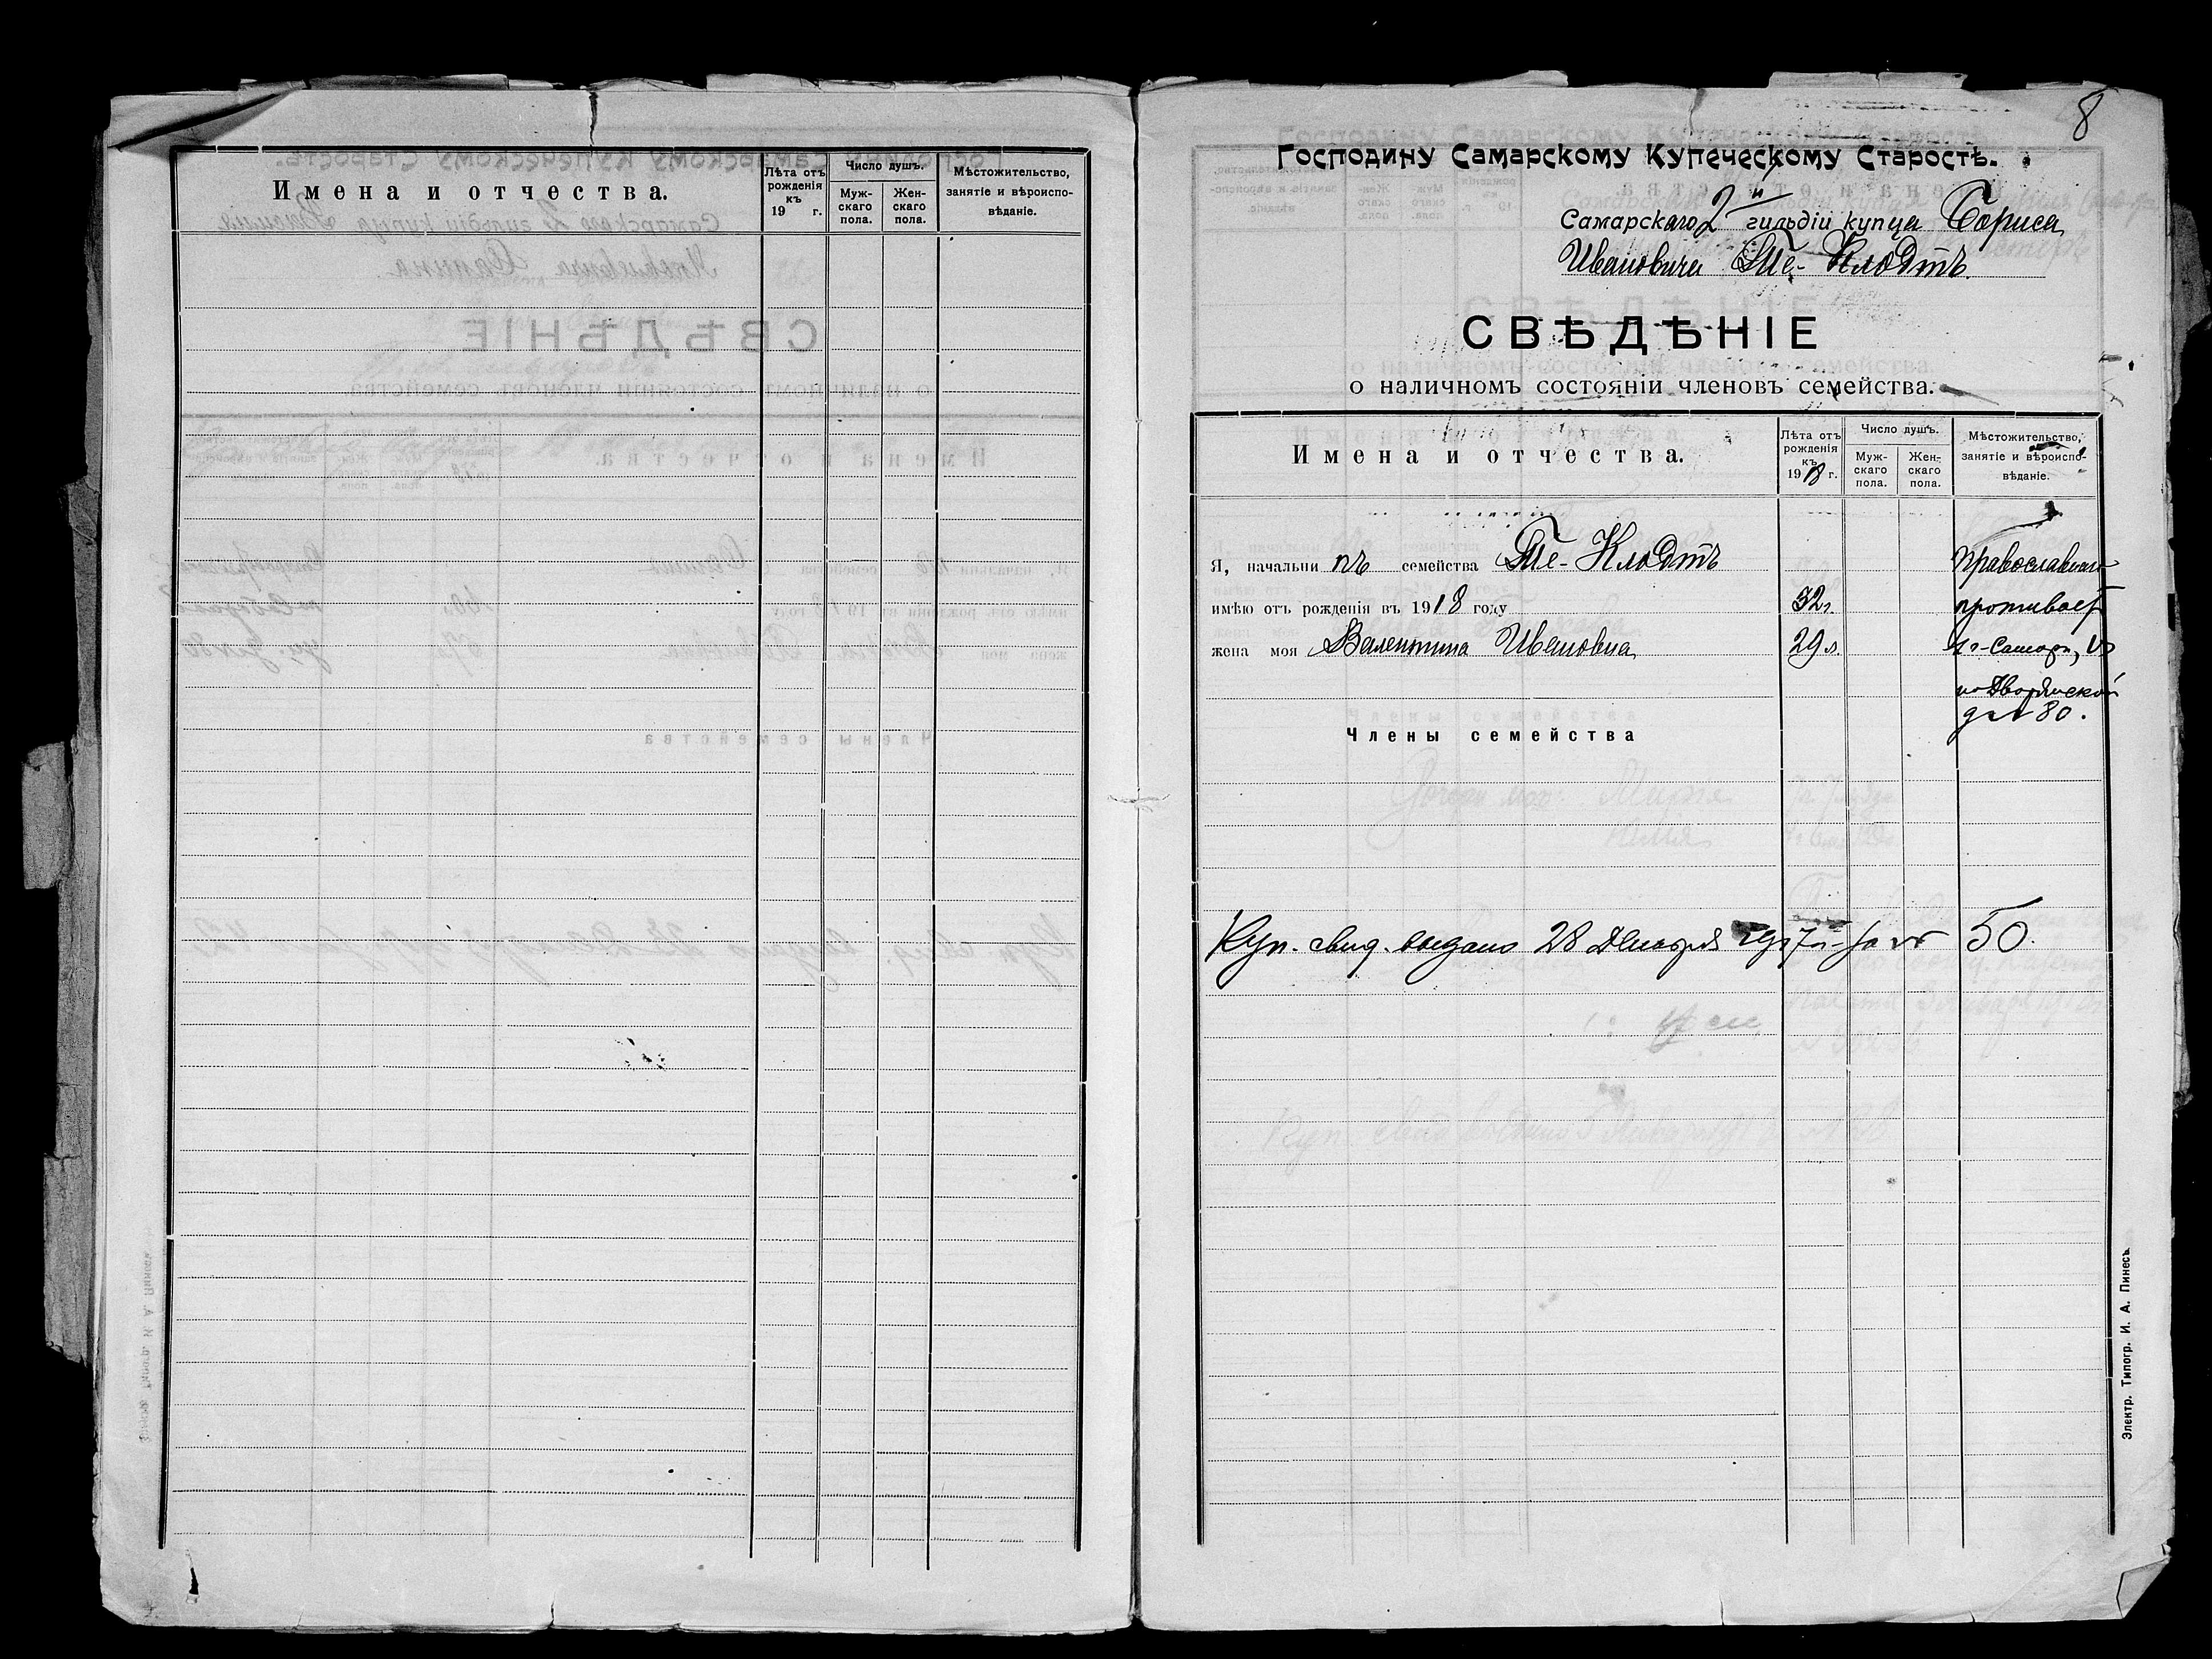 Имена и отчества.
Лѣта отъ рожденія къ 19 г.
Число душъ.
Муж-скаго пола.
Жен-скаго пола.
Мѣстожительство, занятіе и вѣроиспо-вѣданіе.
8
Господину Самарскому Купеческому Старостѣ.
Самарскаго 2й гильдіи купца Бориса
Ивановича Те-Клодтъ.
СВѢДѢНІЕ
о наличномъ состояніи членовъ семейства.
Имена и отчества.
Лѣта отъ рожденія къ 1918 г.
Число душъ.
Муж-скаго пола.
Жен-скаго пола.
Мѣстожительство, занятіе и вѣроиспо-вѣданіе.
Я, начальникъ семейства Те-Клодтъ
имѣю отъ рожденія въ 1918 году 32 г.
жена моя Валентина Ивановна 29 л.
Дворянской
80.
Члены семейства
Куп. свид. выдано 28 Декабря 1917 г. за № 50.
Электр. Типогр. И. А. Пинесъ.